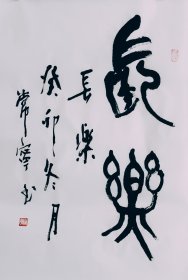 長樂
長樂
癸卯冬月
常寧书